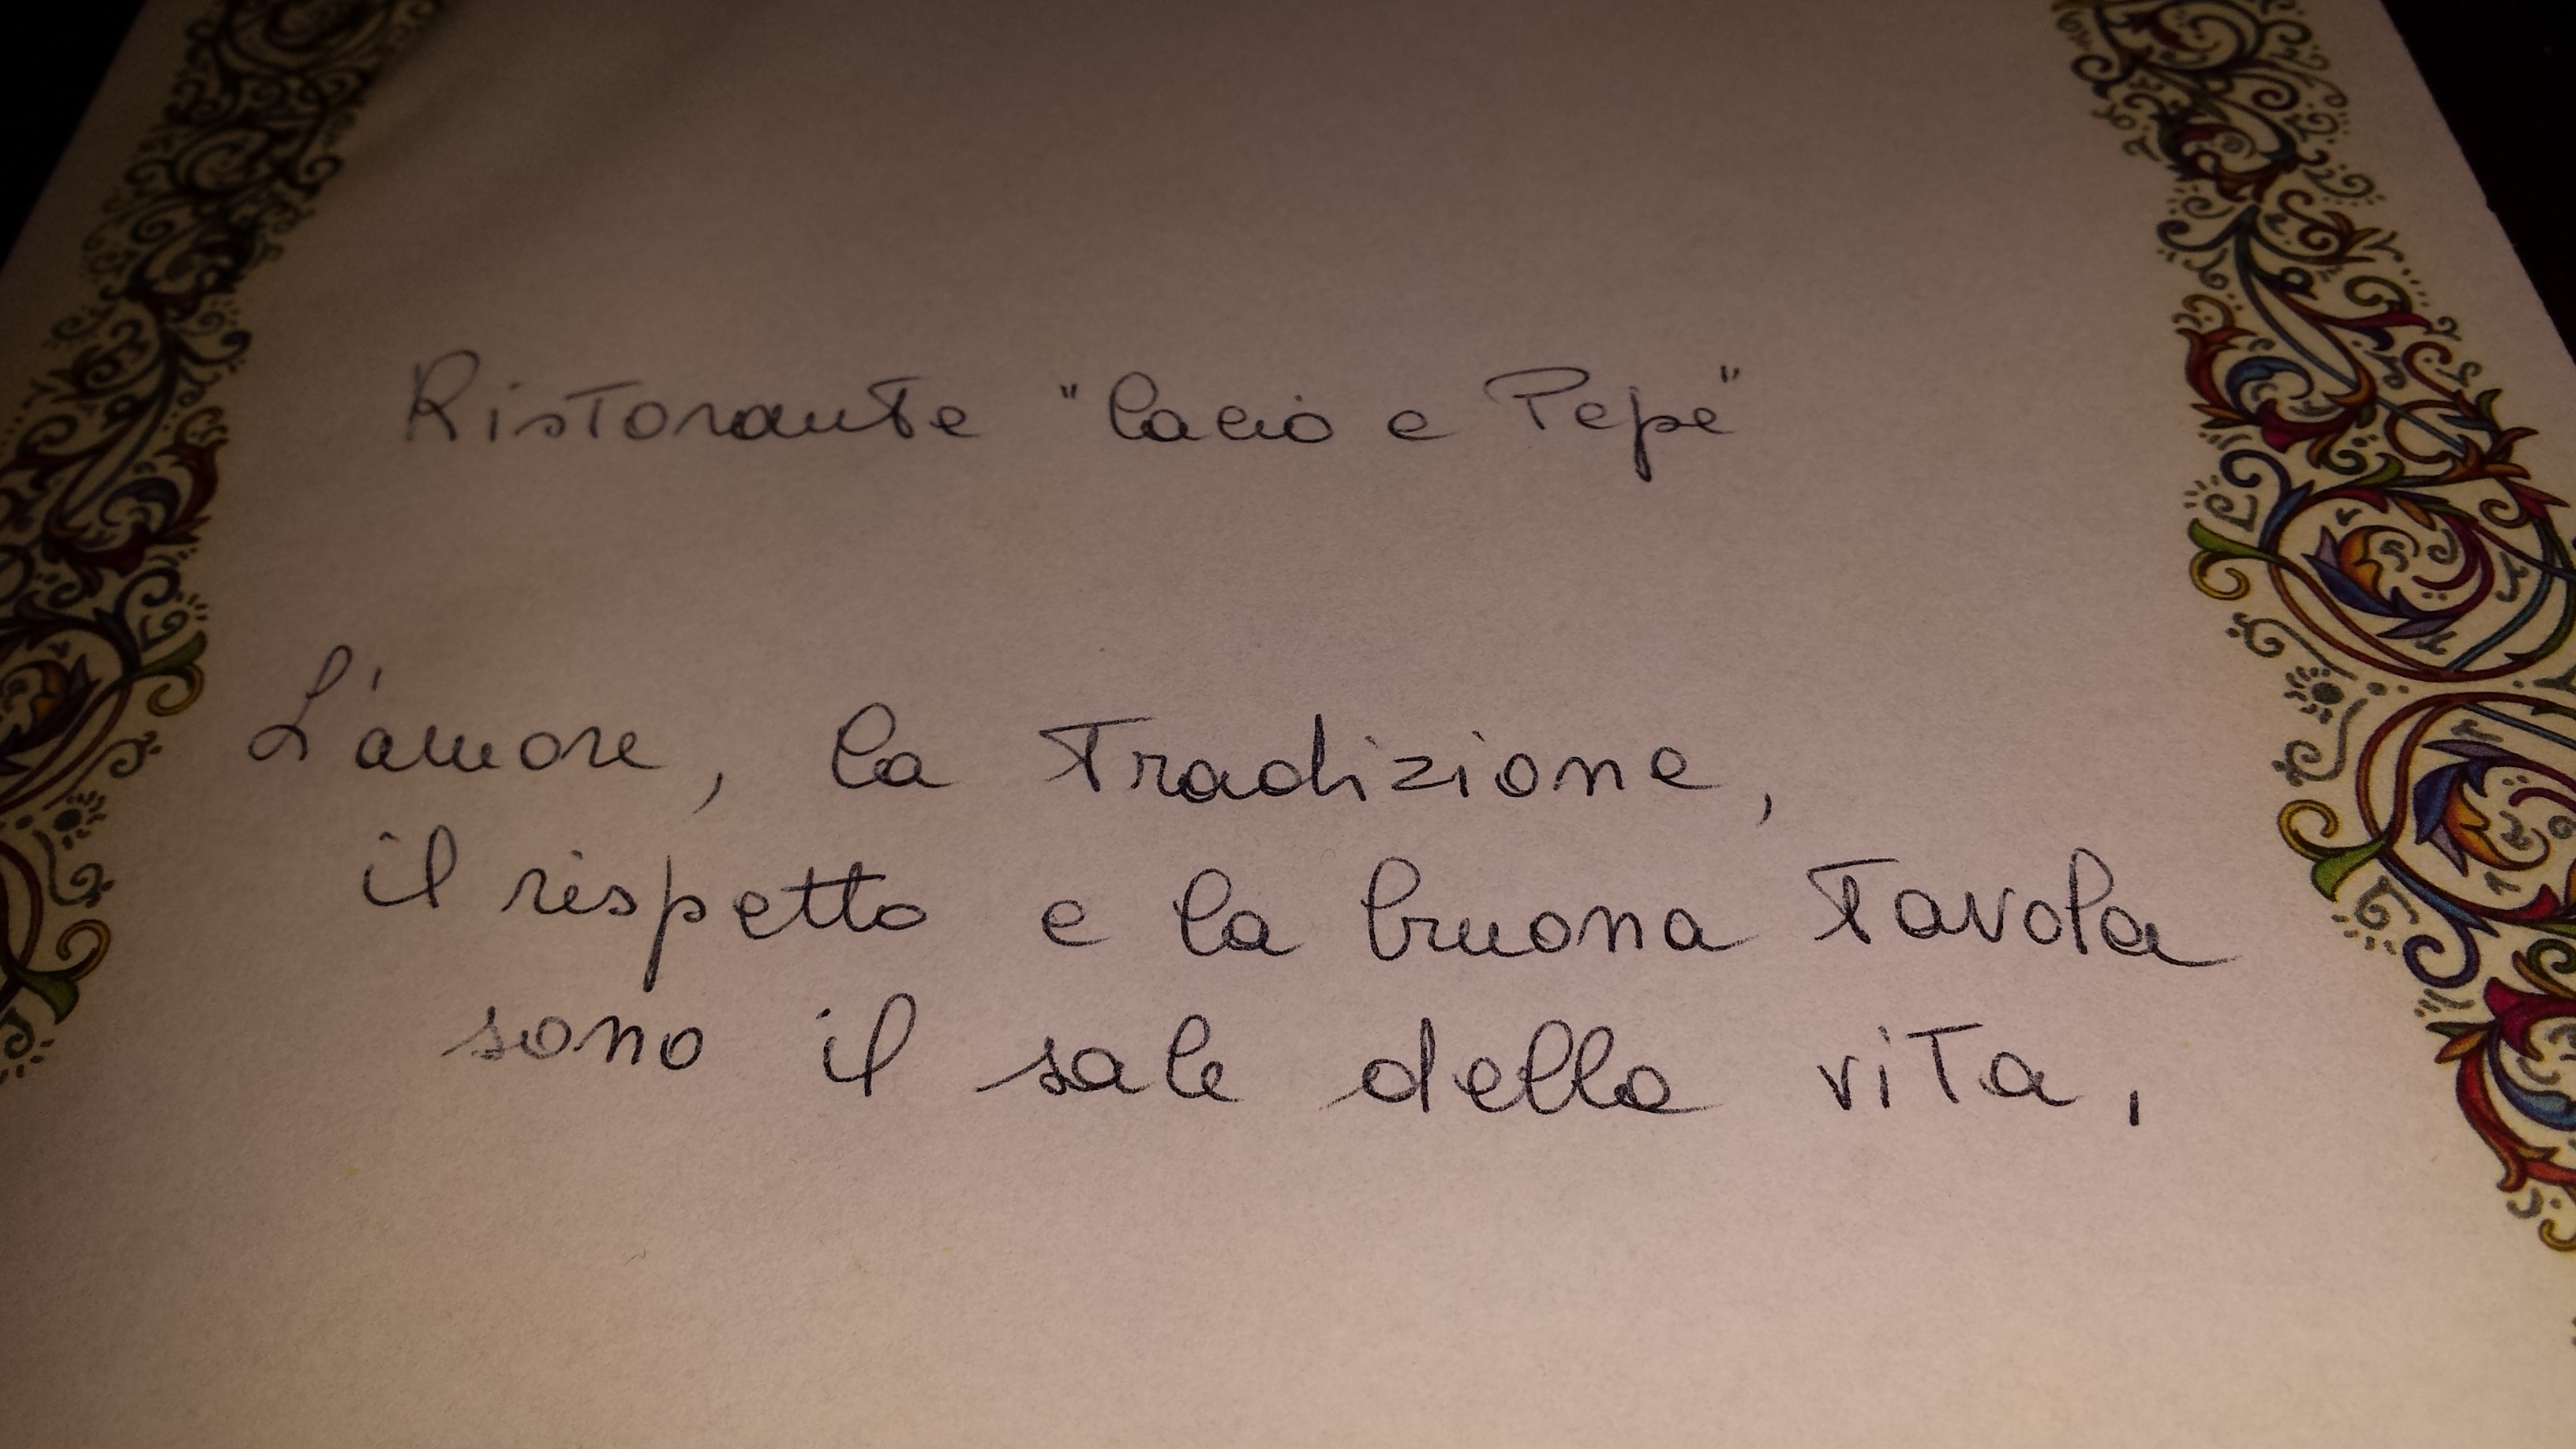 Ristorante "Cacio e Pepe"
L'amore, la Tradizione,
il rispetto e la buona Tavola
sono il sale della vita.